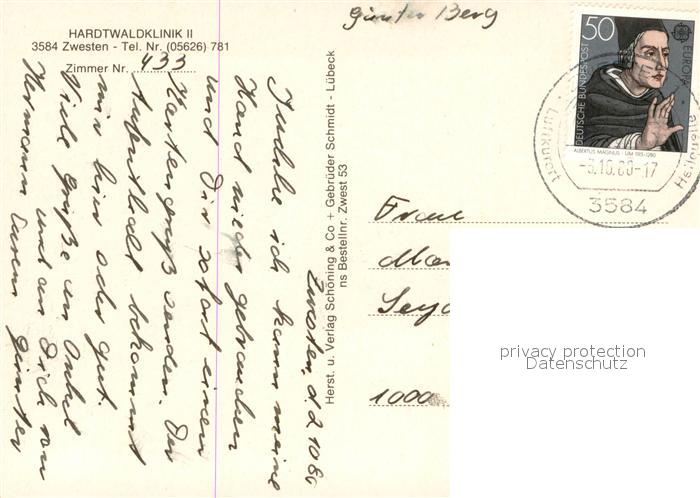 HARDTWALDKLINIK II
3584 Zwesten - Tel. Nr. (05626) 781
Zimmer Nr. 433
Zwesten, d. 2.10.80
Juchhe ich kann meine
Hand wieder gebrauchen
und Dir sofort einen
Kartengruß senden. Der
Aufenthalt bekommt
mir hier sehr gut.
Viele Grüße an Onkel
Hermann und an Dich von
Eurem Günter
Herst. u. Verlag Schöning & Co + Gebrüder Schmidt - Lübeck
ns Bestellnr. Zwest 53
Günter Berg
50
DEUTSCHE BUNDESPOST
EUROPA
ALBERTUS MAGNUS · UM 1193-1280
Luftkurort
-3.10.80-17
3584
Frau
Mar
Seyd
1000
privacy protection
Datenschutz